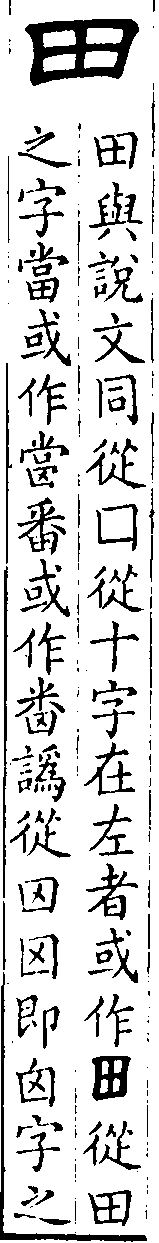 田
田與說文同從口從十字在左者或作田從田
之字當或作番或作譌從即囟字之